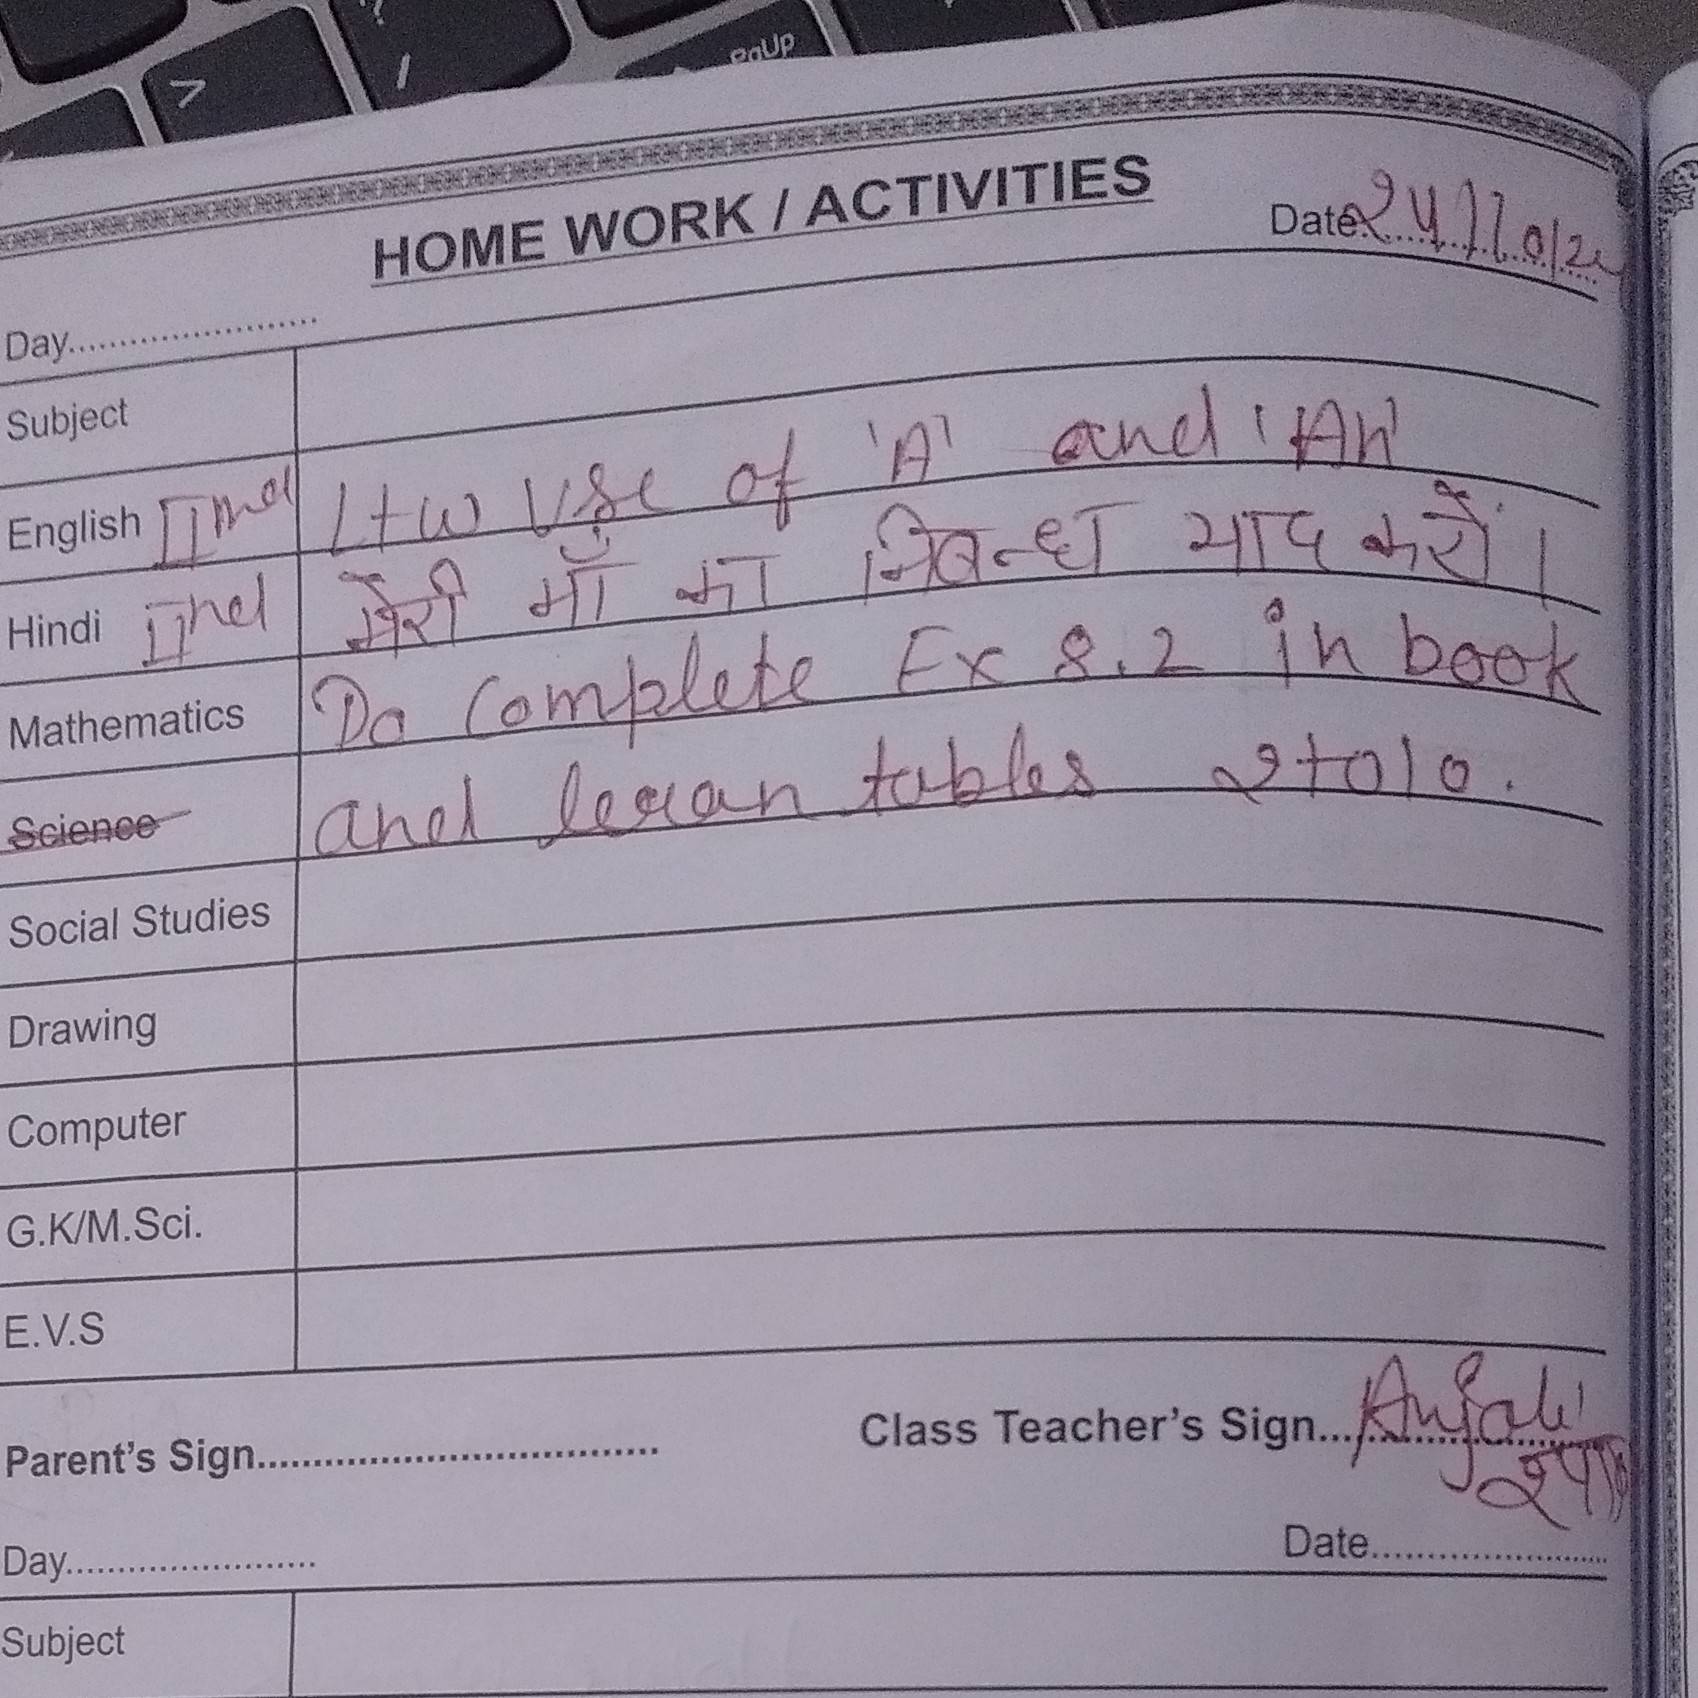 >
?
/
PgUp
HOME WORK / ACTIVITIES
Day........................ Date 24/10/24
Subject
English IInd L+W Use of 'A' and 'An'
Hindi IInd मेरी माँ का निबन्ध याद करों।
Mathematics Do complete Ex 8.2 in book
Science and learan tables 2to10.
Social Studies
Drawing
Computer
G.K/M.Sci.
E.V.S
Parent's Sign.................................... Class Teacher's Sign... Anjali
Day........................ Date........................
Subject